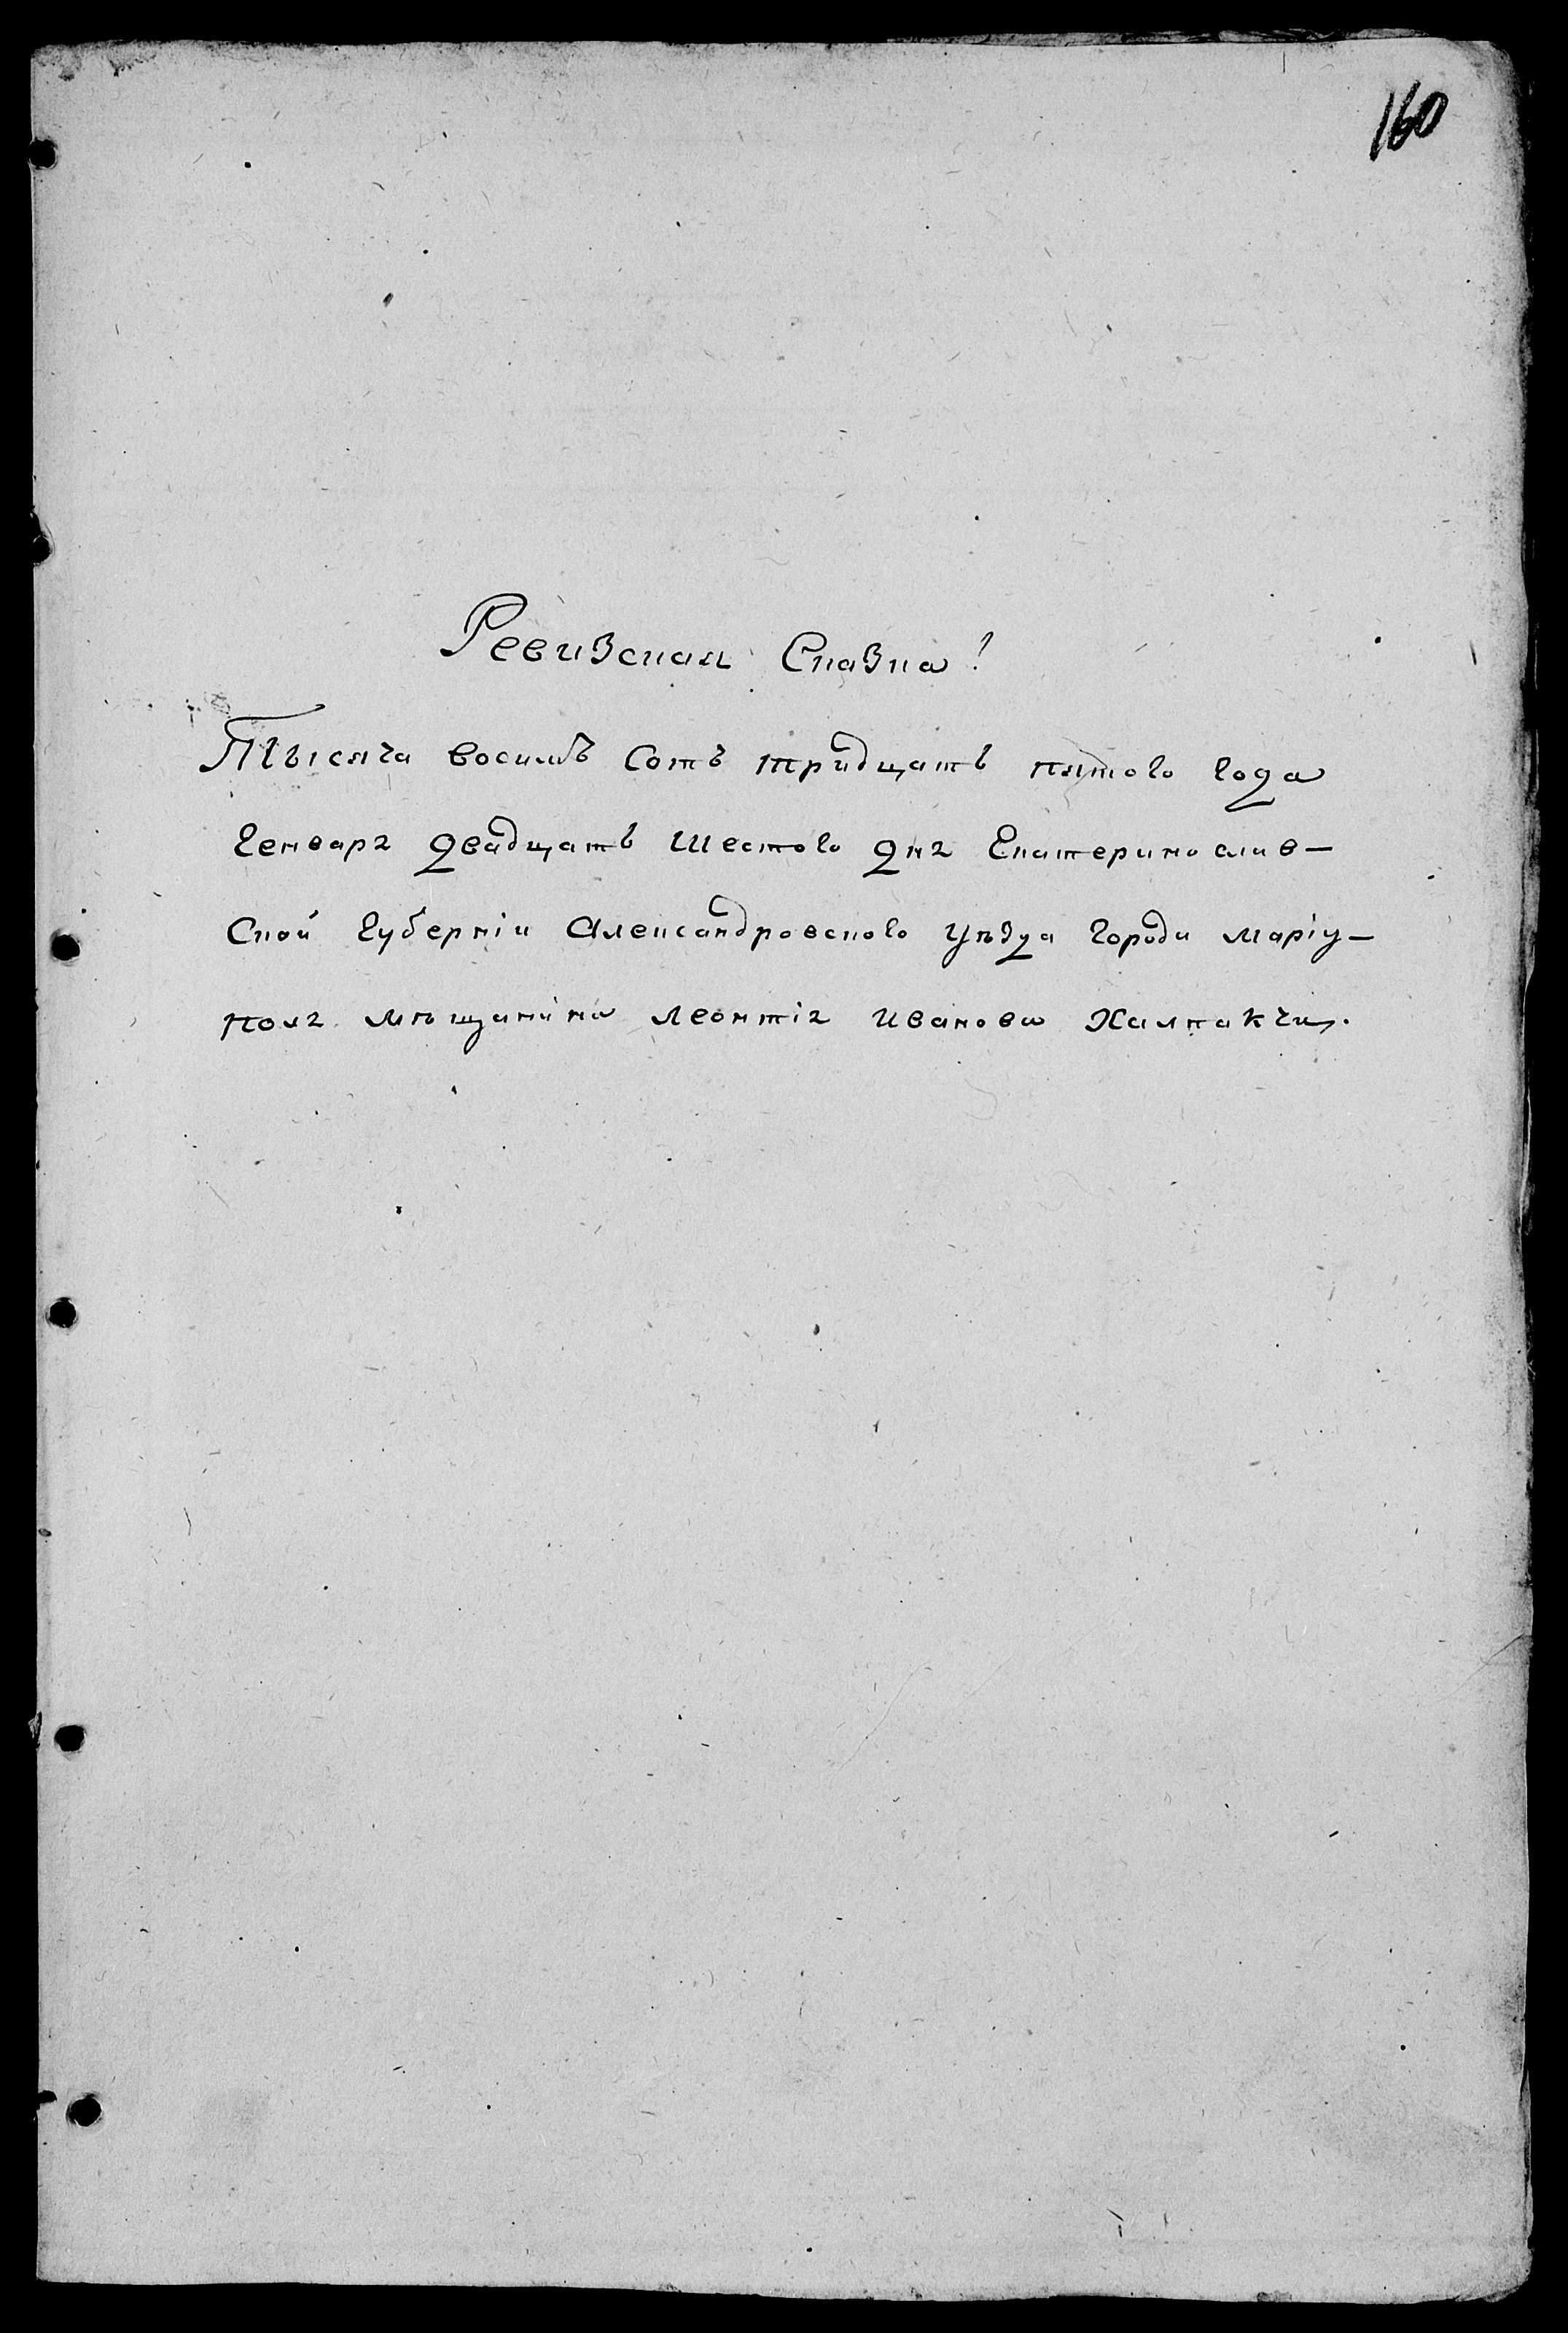 160
Ревизская Сказка!
Тысяча восимъ Сотъ тридцать пятого года
Генваря двадцать Шестого дня Екатеринослав-
Ской Губерніи Александровского уѣзда города маріу-
поля мѣщанина леонтія иванова Халпакчи.